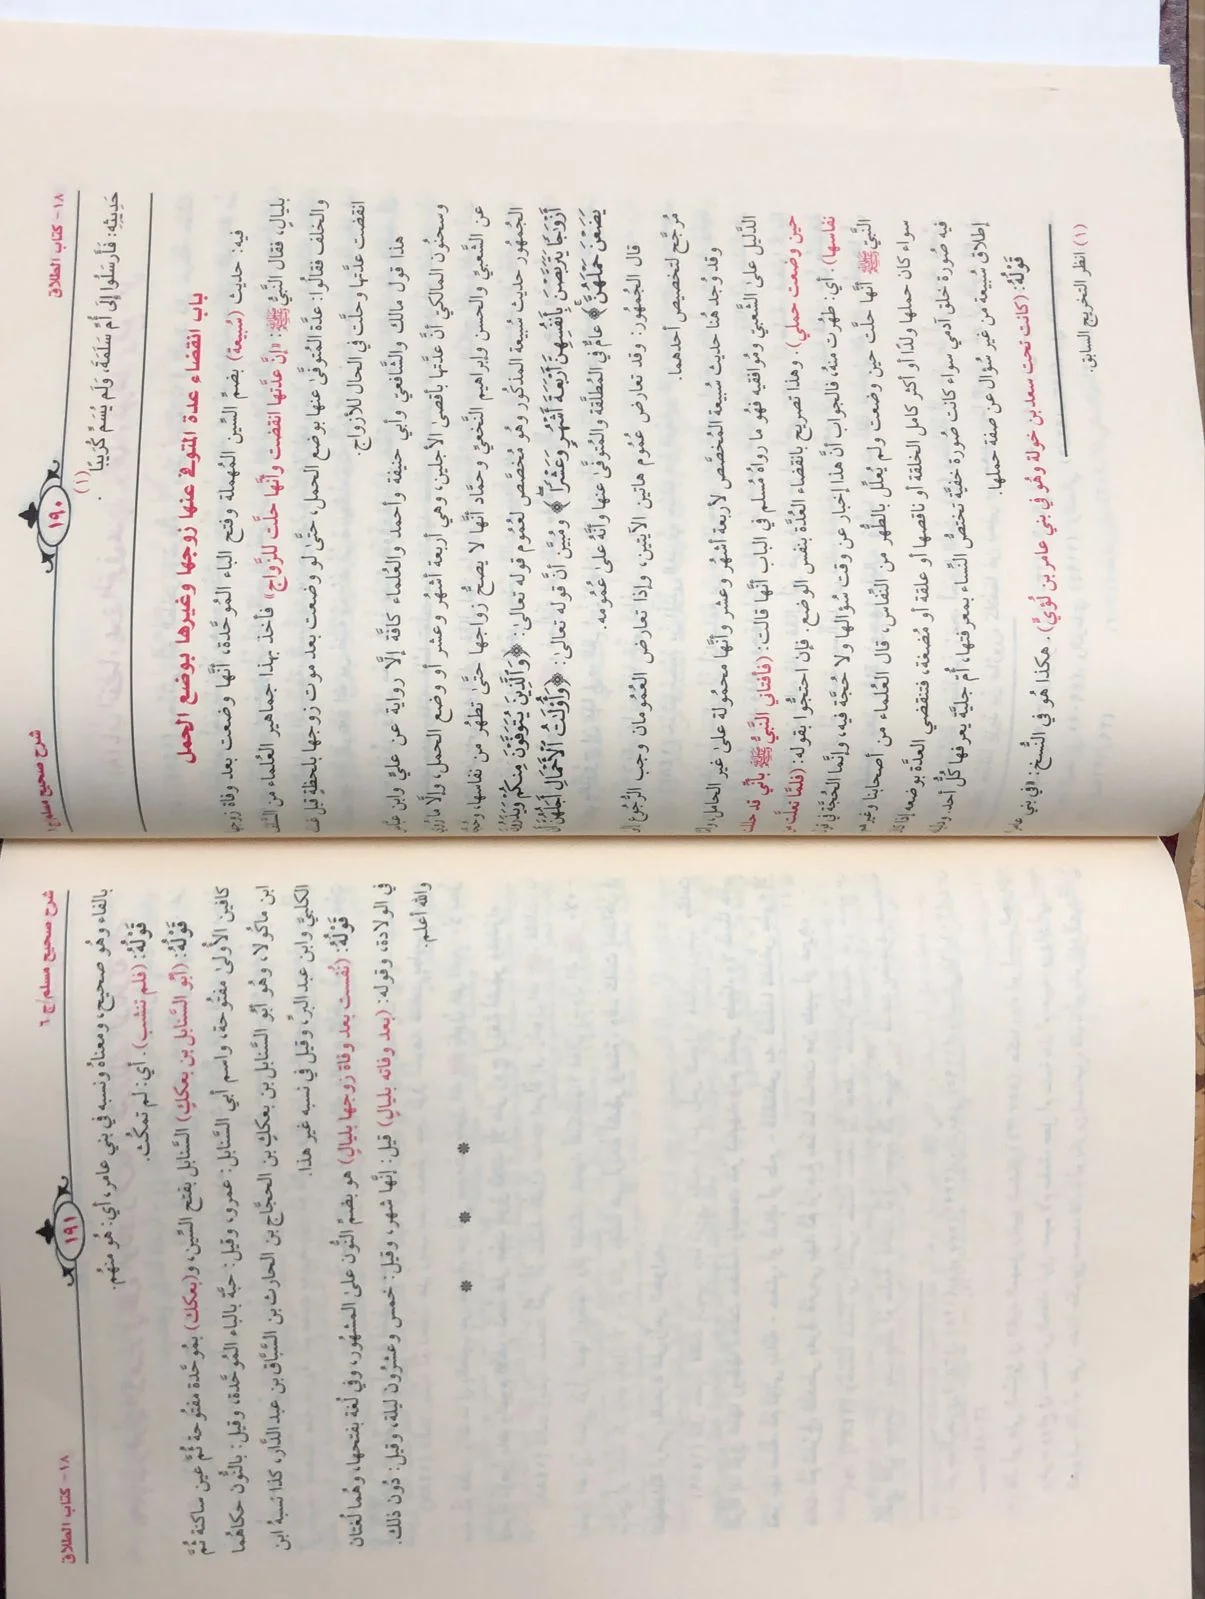 ١٨- كتاب الطلاق
١٩٠
شرح صحيح مسلم/ج
حَدِيثِهِ: فَأَرْسَلُوا إِلَى أُمِّ سَلَمَةَ، وَلَمْ يُسَمِّ كُرَيْبًا(١).
باب انقضاء عدة المتوفى عنها زوجها وغيرها بوضع الحمل
فيه: حديث (سُبيعة) بضمِّ السِّين المُهملة وفتح الباء المُوحَّدة، أنَّها وضعت بعد وفاة زوجها
بليالٍ، فقال النَّبيُّ ﷺ: «إنَّ عدَّتها انقضت وأنَّها حلَّت للزَّواج» فأخذ بهذا جماهير العُلماء من السَّلف
والخلف فقالُوا: عدَّة المُتوفَّىٰ عنها بوضع الحمل، حتَّىٰ لو وضعت بعد موت زوجها بلحظةٍ قبل غسله
انقضت عدَّتها وحلَّت في الحال للأزواج.
هذا قول مالك والشَّافعي وأبي حنيفة وأحمد والعُلماء كافَّة إلَّا رواية عن عليٍّ وابن عبَّاس
وسحنُون المالكي أنَّ عدَّتها بأقصىٰ الأجلين، وهي أربعة أشهُر وعشر أو وضع الحمل، وإلَّا ما رُوي
عن الشَّعبيِّ والحسن وإبراهيم النَّخعيِّ وحمَّاد أنَّها لا يصحُّ زواجها حتَّىٰ تطهُر من نفاسها، وحجَّة
الجُمهُور حديث سُبيعة المذكُور وهُو مُخصِّص لعُمُوم قوله تعالىٰ: ﴿وَٱلَّذِينَ يُتَوَفَّوۡنَ مِنكُمۡ وَيَذَرُونَ
أَزۡوَٰجٗا يَتَرَبَّصۡنَ بِأَنفُسِهِنَّ أَرۡبَعَةَ أَشۡهُرٖ وَعَشۡرٗا﴾ ومُبيِّن أنَّ قوله تعالىٰ: ﴿وَأُوْلَٰتُ ٱلۡأَحۡمَالِ أَجَلُهُنَّ أَن
يَضَعۡنَ حَمۡلَهُنَّ﴾ عامٌّ في المُطلَّقة والمُتوفَّىٰ عنها وأنَّهُ علىٰ عُمُومه.
قال الجُمهُور: وقد تعارض عُمُوم هاتين الآيتين، وإذا تعارض العُمُومان وجب الرُّجُوع إلىٰ
مُرجِّح لتخصيص أحدهما.
وقد وُجد هُنا حديث سُبيعة المُخصِّص لأربعة أشهُر وعشر وأنَّها محمُولة علىٰ غير الحامل،
الدَّليل علىٰ الشَّعبيِّ ومُوافقيه فهُو ما رواهُ مُسلم في الباب أنَّها قالت: (فأفتاني النَّبيُّ ﷺ بأنِّي قد حللت
حين وضعت حملي). وهذا تصريح بانقضاء العُدَّة بنفس الوضع. فإن احتجُّوا بقوله: (فلمَّا تعلَّت من
نفاسها). أي: طهُرت منهُ، فالجواب أنَّ هذا إخبار عن وقت سُؤالها ولا حُجَّة فيه، وإنَّما الحُجَّة في قول
النَّبيِّ ﷺ أنَّها حلَّت حين وضعت ولم يُعلِّل بالطُّهر من النِّفاس، قال العُلماء من أصحابنا وغيرهم:
سواء كان حملها ولدًا أو أكثر كامل الخلقة أو ناقصها أو علقة أو مُضغة، فتنقضي العدَّة بوضعه إذا كان
فيه صُورة خلق آدمي سواء كانت صُورة خفيَّة تختصُّ النِّساء بمعرفتها، أم جليَّة يعرفها كُلُّ أحد، ودليلهُ
إطلاق سُبيعة من غير سُؤال عن صفة حملها.
قَوْلُهُ: (كانت تحت سعد بن خولة وهُو في بني عامر بن لُؤيٍّ). هكذا هُو في النُّسخ: «في بني عامر»
(١) انظر التخريج السابق.
شرح صحيح مسلم/ج٦
١٩١
١٨- كتاب الطلاق
بالفاء وهُو صحيح، ومعناهُ ونسبه في بني عامر، أي: هُو منهُم.
قَوْلُهُ: (فلم تنشب). أي: لم تمكُث.
قَوْلُهُ: (أبُو السَّنابل بن بعككٍ) السَّنابل بفتح السِّين، و(بعكك) بمُوحَّدة مفتُوحة ثُمَّ عين ساكنة ثُمَّ
كافين الأُولىٰ مفتُوحة، واسم أبي السَّنابل: عمرو، وقيل: حبَّة بالباء المُوحَّدة، وقيل: بالنُّون حكاهُما
ابن ماكُولا، وهُو أبُو السَّنابل بن بعككِ بن الحجَّاج بن الحارث بن السَّبَّاق بن عبد الدَّار، كذا نسبهُ ابن
الكلبيِّ وابن عبد البرِّ، وقيل في نسبه غير هذا.
قَوْلُهُ: (نُفست بعد وفاة زوجها بليالٍ) هُو بضمِّ النُّون علىٰ المشهُور، وفي لُغة بفتحها، وهُما لُغتان
في الولادة، وقوله: (بعد وفاته بليالٍ) قيل: إنَّها شهر، وقيل: خمس وعشرُون ليلة، وقيل: دُون ذلك.
والله أعلم.
* * *